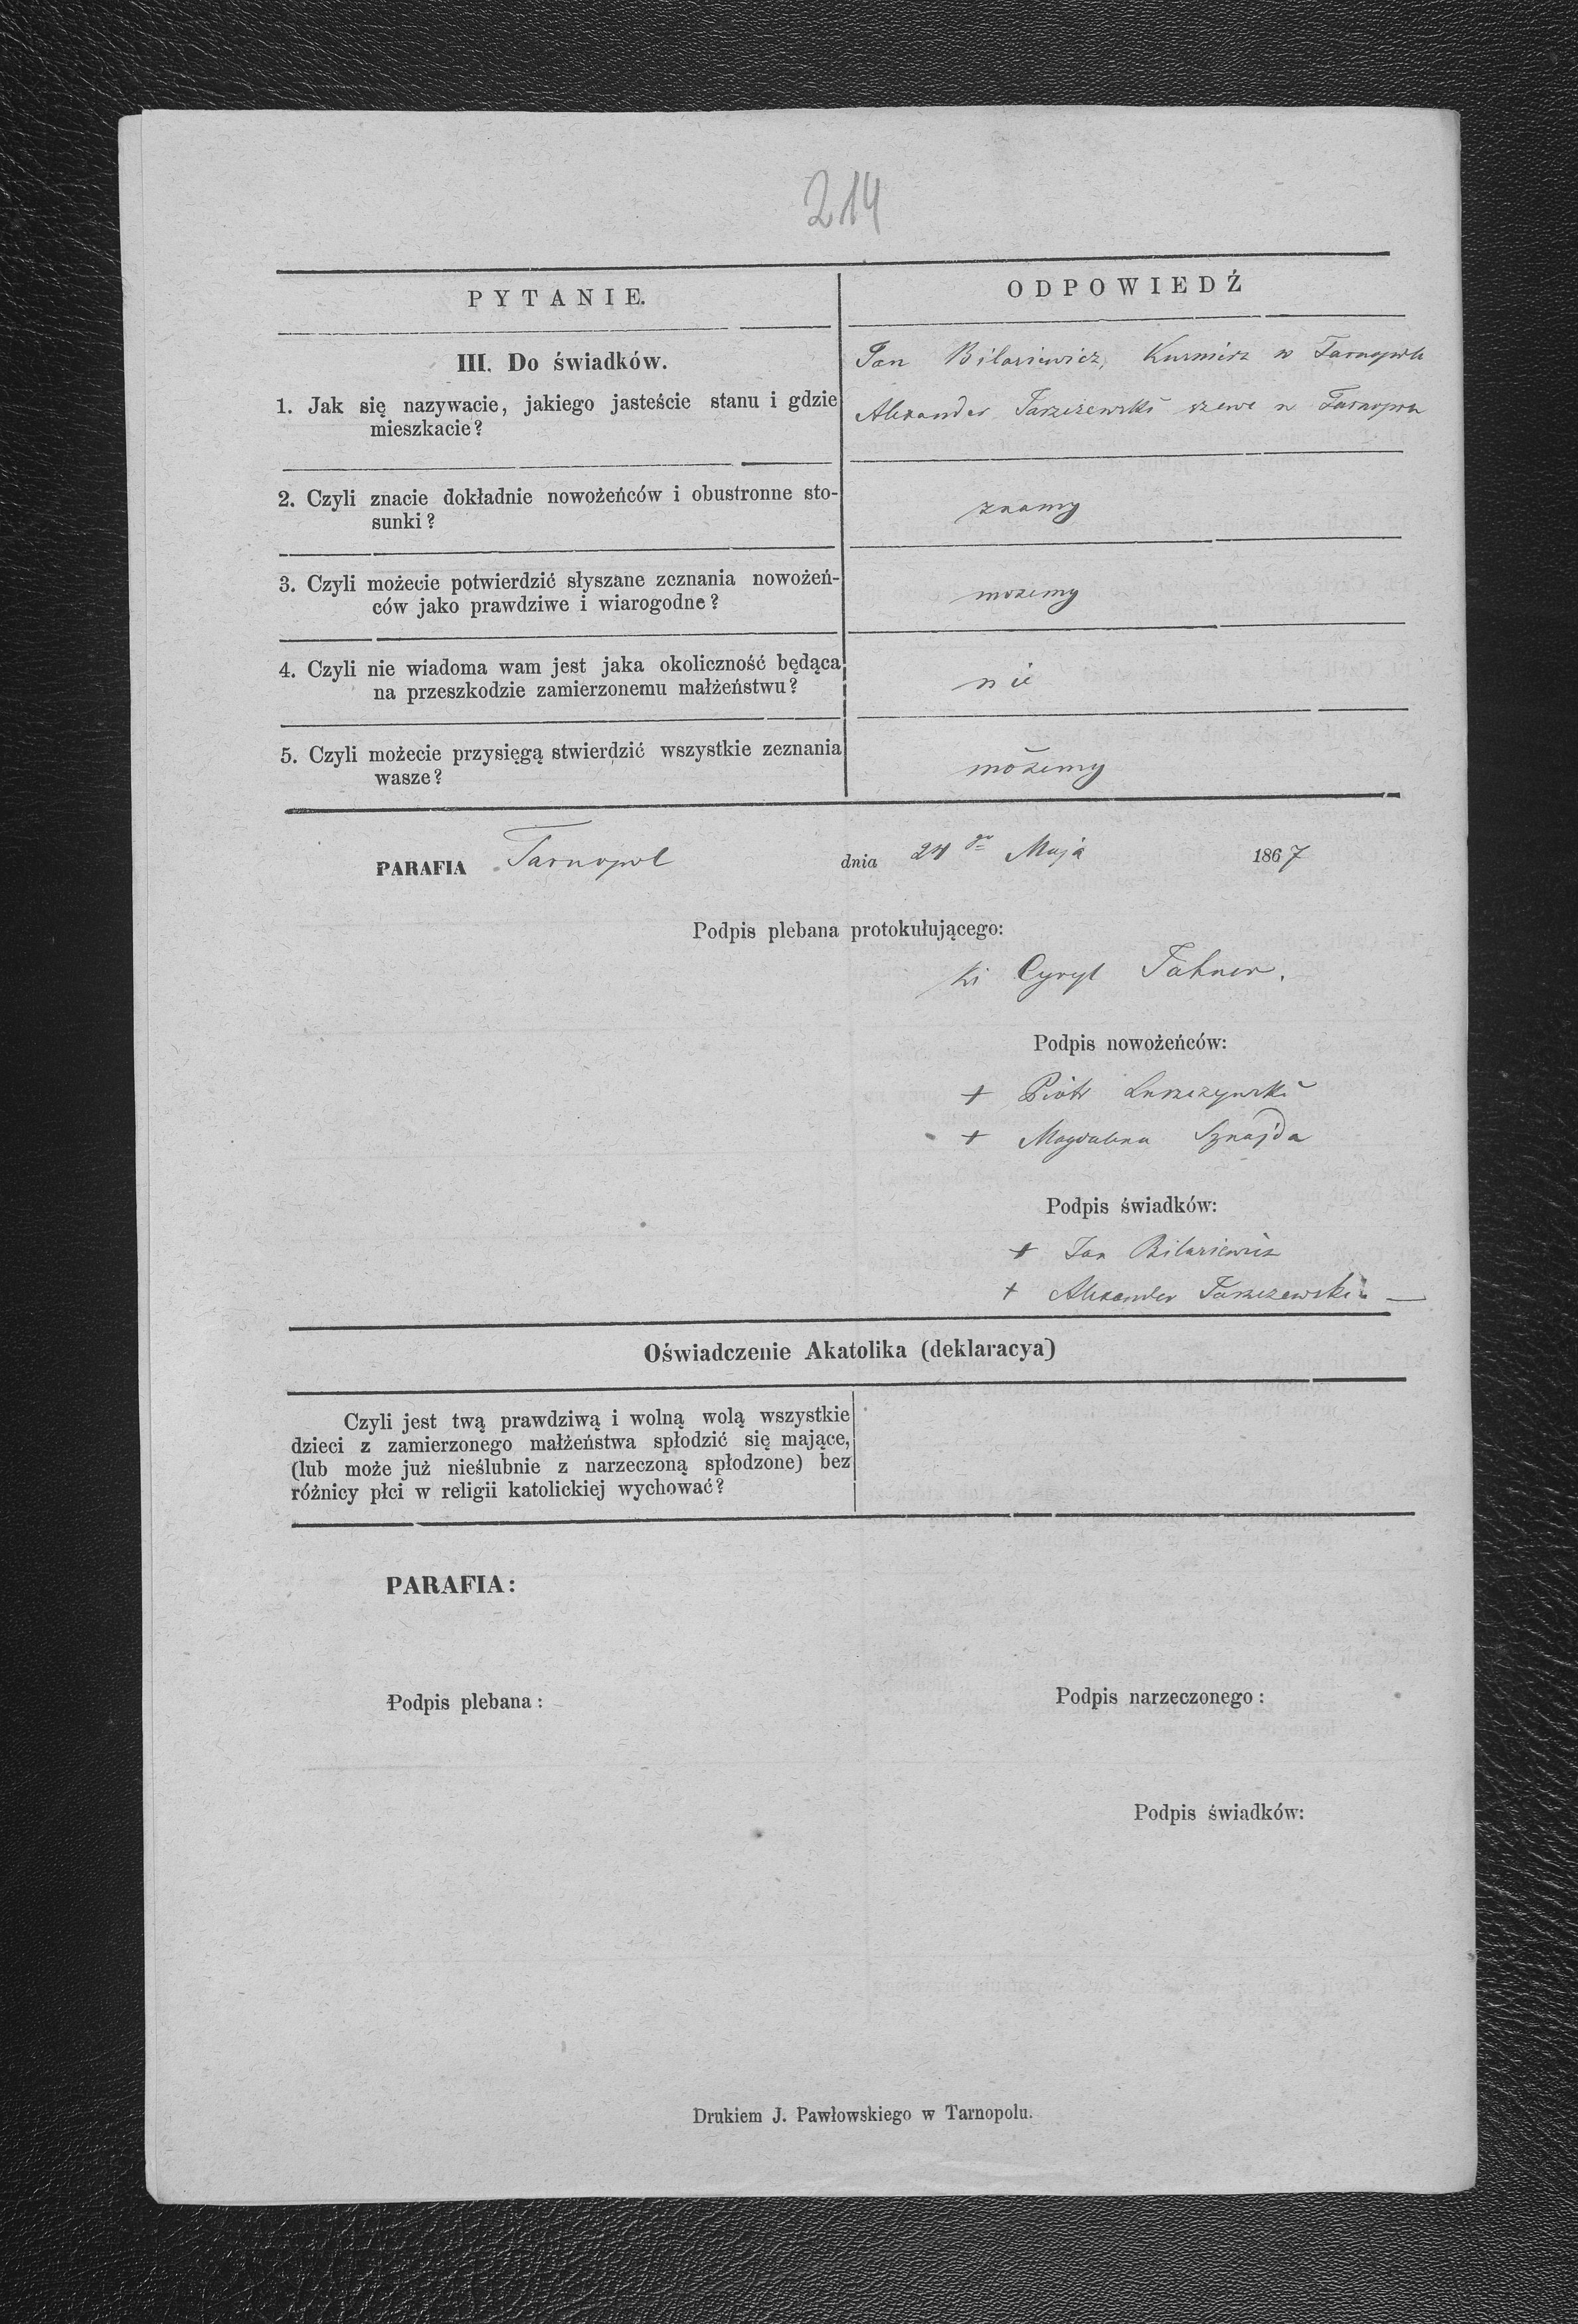 214
PYTANIE.
ODPOWIEDŹ
III. Do świadków.
1. Jak się nazywacie, jakiego jasteście stanu i gdzie
mieszkacie?
Jan Bilariewicz, Kusnierz w Tarnopolu
Alexander Tarzezewski szewc w Tarnopolu
2. Czyli znacie dokładnie nowożeńców i obustronne sto-
sunki?
znamy
3. Czyli możecie potwierdzić słyszane zeznania nowożeń-
ców jako prawdziwe i wiarogodne?
mozemy
4. Czyli nie wiadoma wam jest jaka okoliczność będąca
na przeszkodzie zamierzonemu małżeństwu?
nie
5. Czyli możecie przysięgą stwierdzić wszystkie zeznania
wasze?
możemy
PARAFIA Tarnopol dnia 24 go Maja 1867
Podpis plebana protokułującego:
Cyryl
Podpis nowożeńców:
+ Piotr
+ Magdalena Sznajda
Podpis świadków:
+ Jan Bilariewicz
+ Alexander Tarzezewski
Oświadczenie Akatolika (deklaracya)
Czyli jest twą prawdziwą i wolną wolą wszystkie
dzieci z zamierzonego małżeństwa spłodzić się mające,
(lub może już nieślubnie z narzeczoną spłodzone) bez
różnicy płci w religii katolickiej wychować?
PARAFIA:
Podpis plebana:
Podpis narzeczonego:
Podpis świadków:
Drukiem J. Pawłowskiego w Tarnopolu.